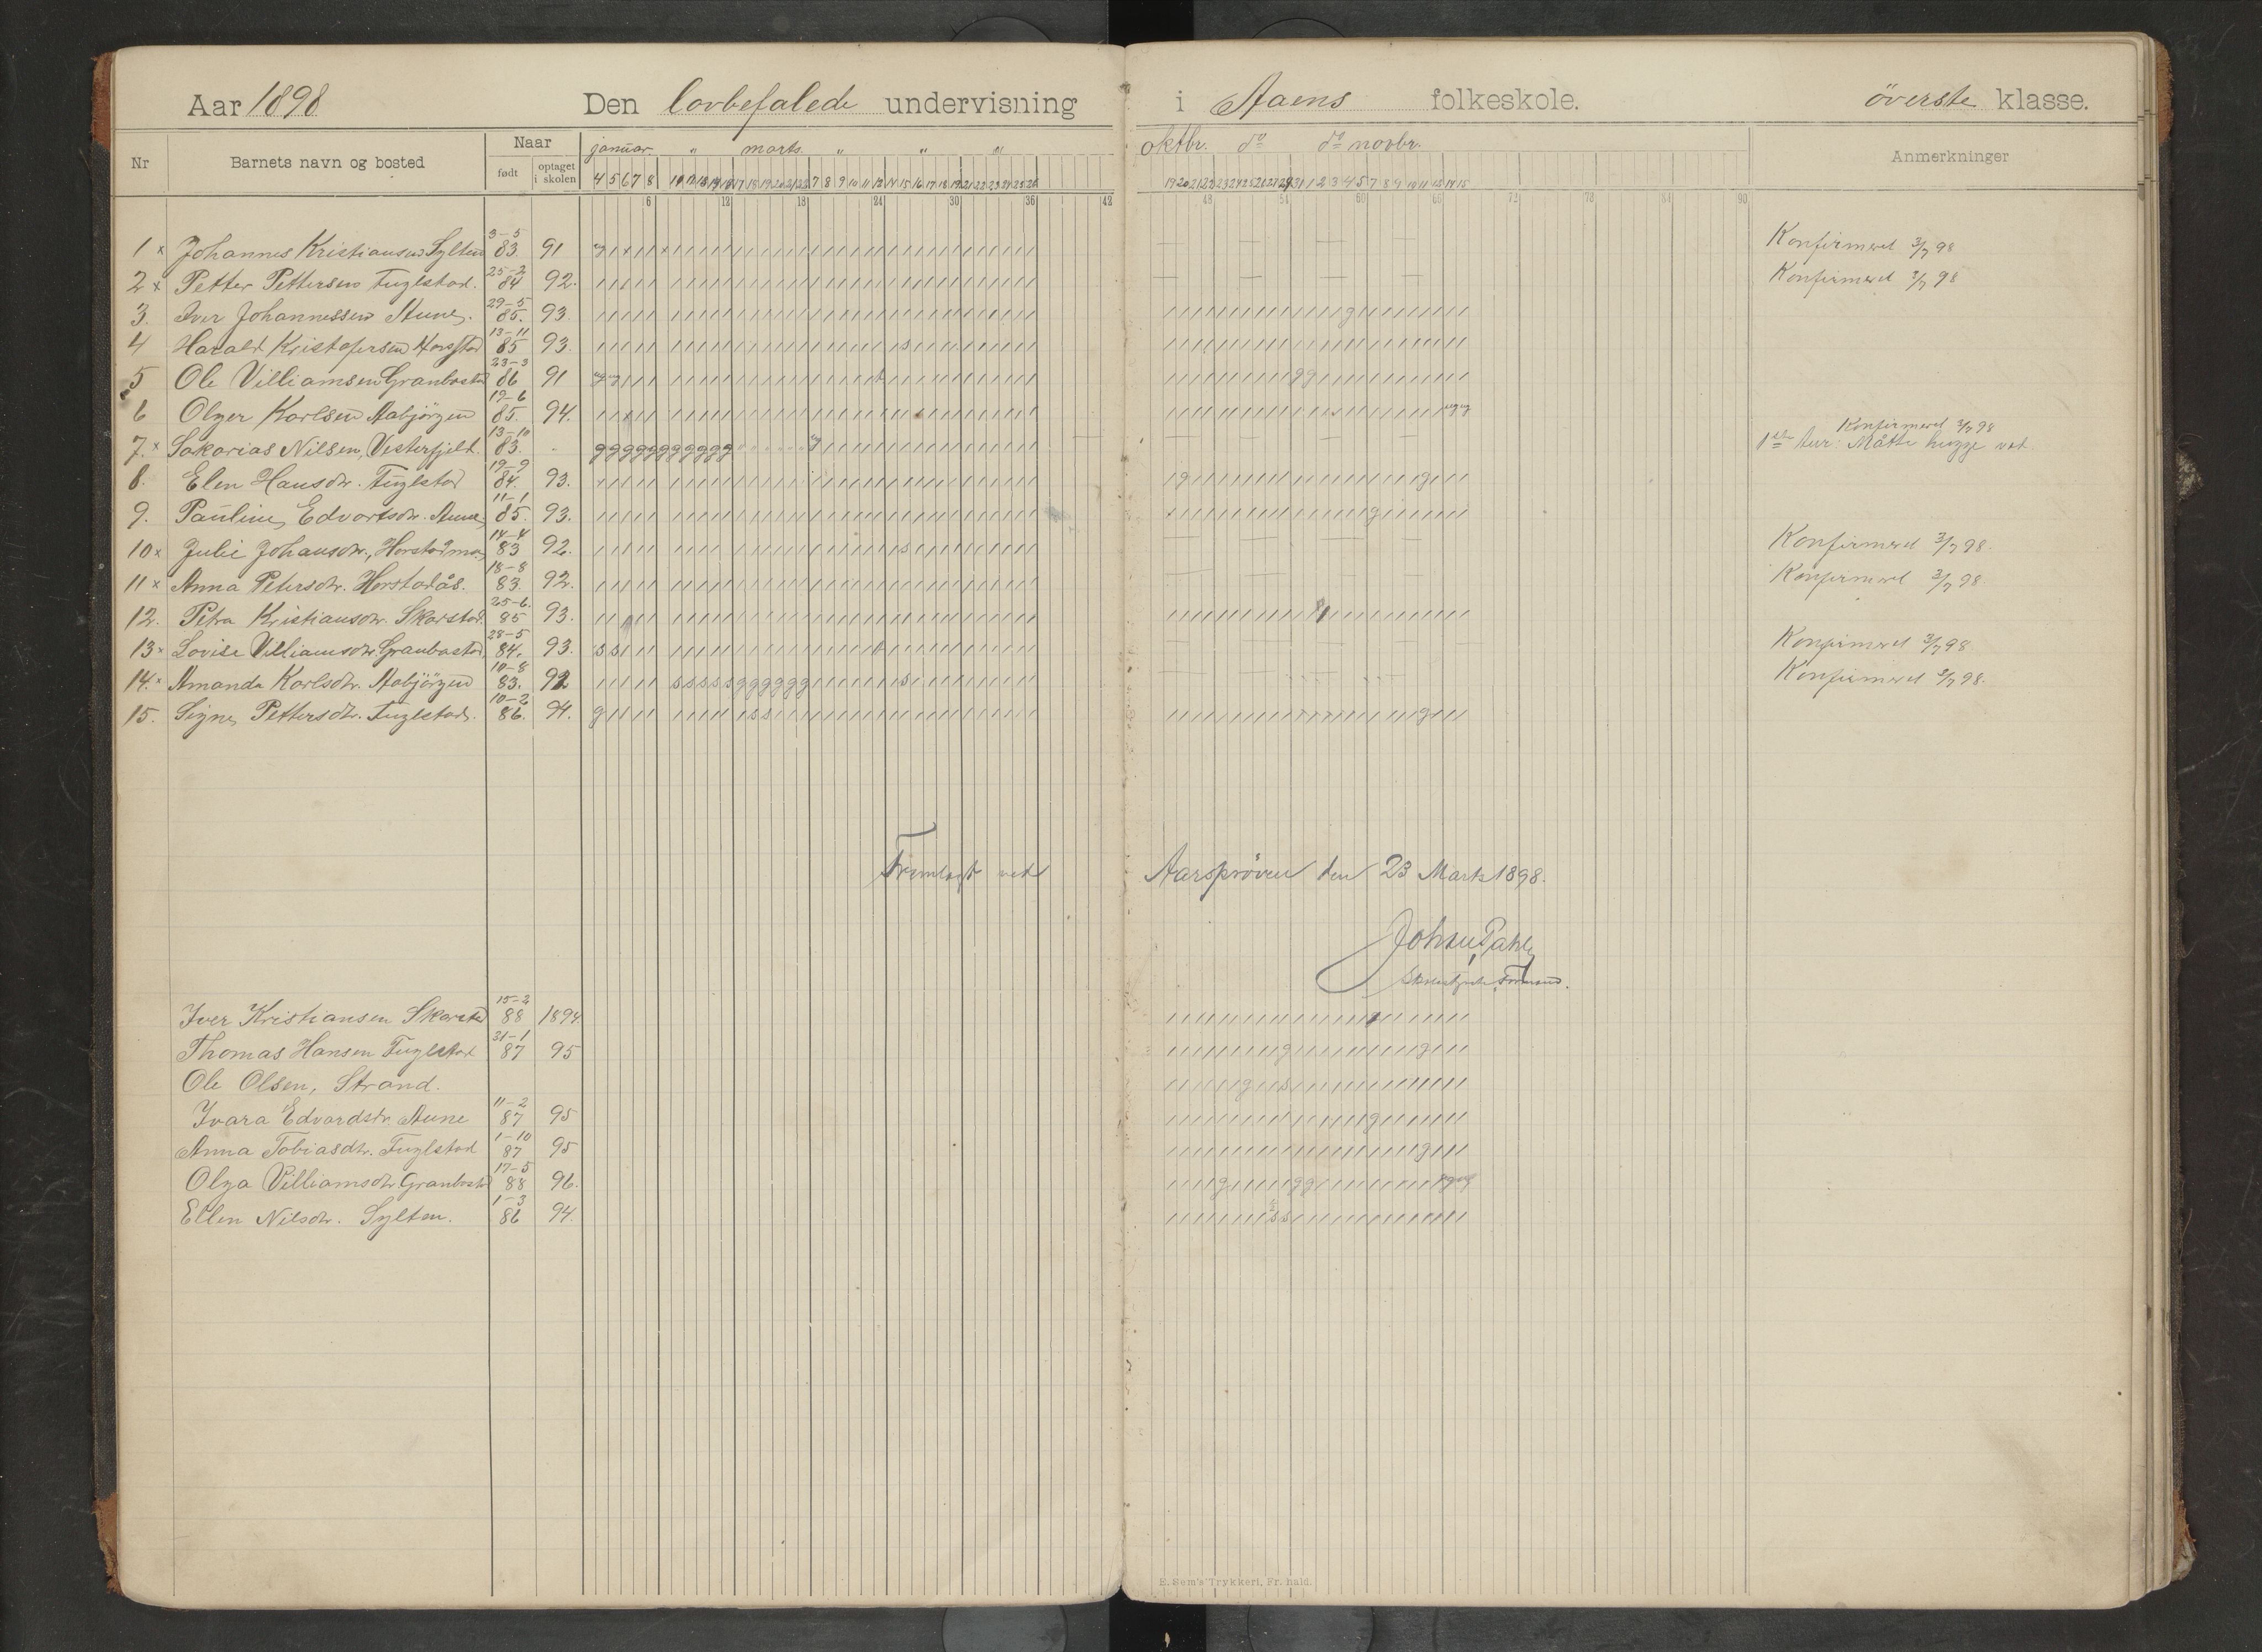 Aar 1898 Den lovbefalede undervisning i Aaens folkeskole. överste klasse.
Nr Barnets navn og bosted Naar født optaget i skolen januar. " marts. " " " oktbr. do do novbr. Anmerkninger
4 5 6 7 8 10 11 12 13 14 15 17 18 19 20 21 22 7 8 9 10 11 12 14 15 16 17 18 19 21 22 23 24 25 26 19 20 21 22 23 24 25 26 27 28 29 31 1 2 3 4 5 7 8 9 10 11 12 14 15
6 12 18 24 30 36 42 48 54 60 66 72 78 84 90
1 x Johannes Kristiansen Sylten 3-5 83. 91 Konfirmeret 3/7 98
2 x Petter Pettersen Fuglstad. 25-2 84 92. Konfirmeret 3/7 98
3. Iver Johannessen Aune. 29-5 85. 93.
4 Harald Kristofersen Horsstad 13-11 85 93.
5 Ole Villiamsen Granbostad 23-3 86 91
6 Olger Karlsen Aabjörgen 19-6 85. 94.
7. x Sakarias Nilsen, Vesterfjeld. 13-10 83. " Konfirmeret 3/7 98
1ste tur: Måtte hugge ved.
8. Elen Hansdtr. Fuglstad 19-9 84. 93.
9. Pauline Edvartsdtr. Aune 11-1 85. 93.
10 x Julie Johansdtr., Horstadmo 14-4 83 92. Konfirmeret 3/7 98.
11 x Anna Petersdtr. Horstadås. 18-8 83. 92. Konfirmeret 3/7 98.
12. Petra Kristiansdtr. Skarstad. 25-6. 85 93.
13 x Lovise Villiamsdtr. Granbostad, 28-5 84. 93. Konfirmeret 3/7 98
14. x Amanda Karlsdtr. Aabjörgen 10-8 83. 92 Konfirmeret 3/7 98.
15. Signe Pettersdtr. Fuglstad. 10-2 86. 94.
Fremlagt ved Aarspröven den 23 Marts 1898.
Johsn Dahl
Formand.
Iver Kristiansen Skarstad 15-2 88 1894.
Thomas Hansen Fuglstad 31-1 87 95
Ole Olsen, Strand.
Ivara Edvardsdtr. Aune 11-2 87 95
Anna Tobiasdtr. Fuglstad 1-10 87 95
Olga Villiamsdtr. Granbostad 17-5 88 96.
Ellen Nilsdtr. Sylten. 1-3 86 94.
E. Sem's Trykkeri, Fr. hald.